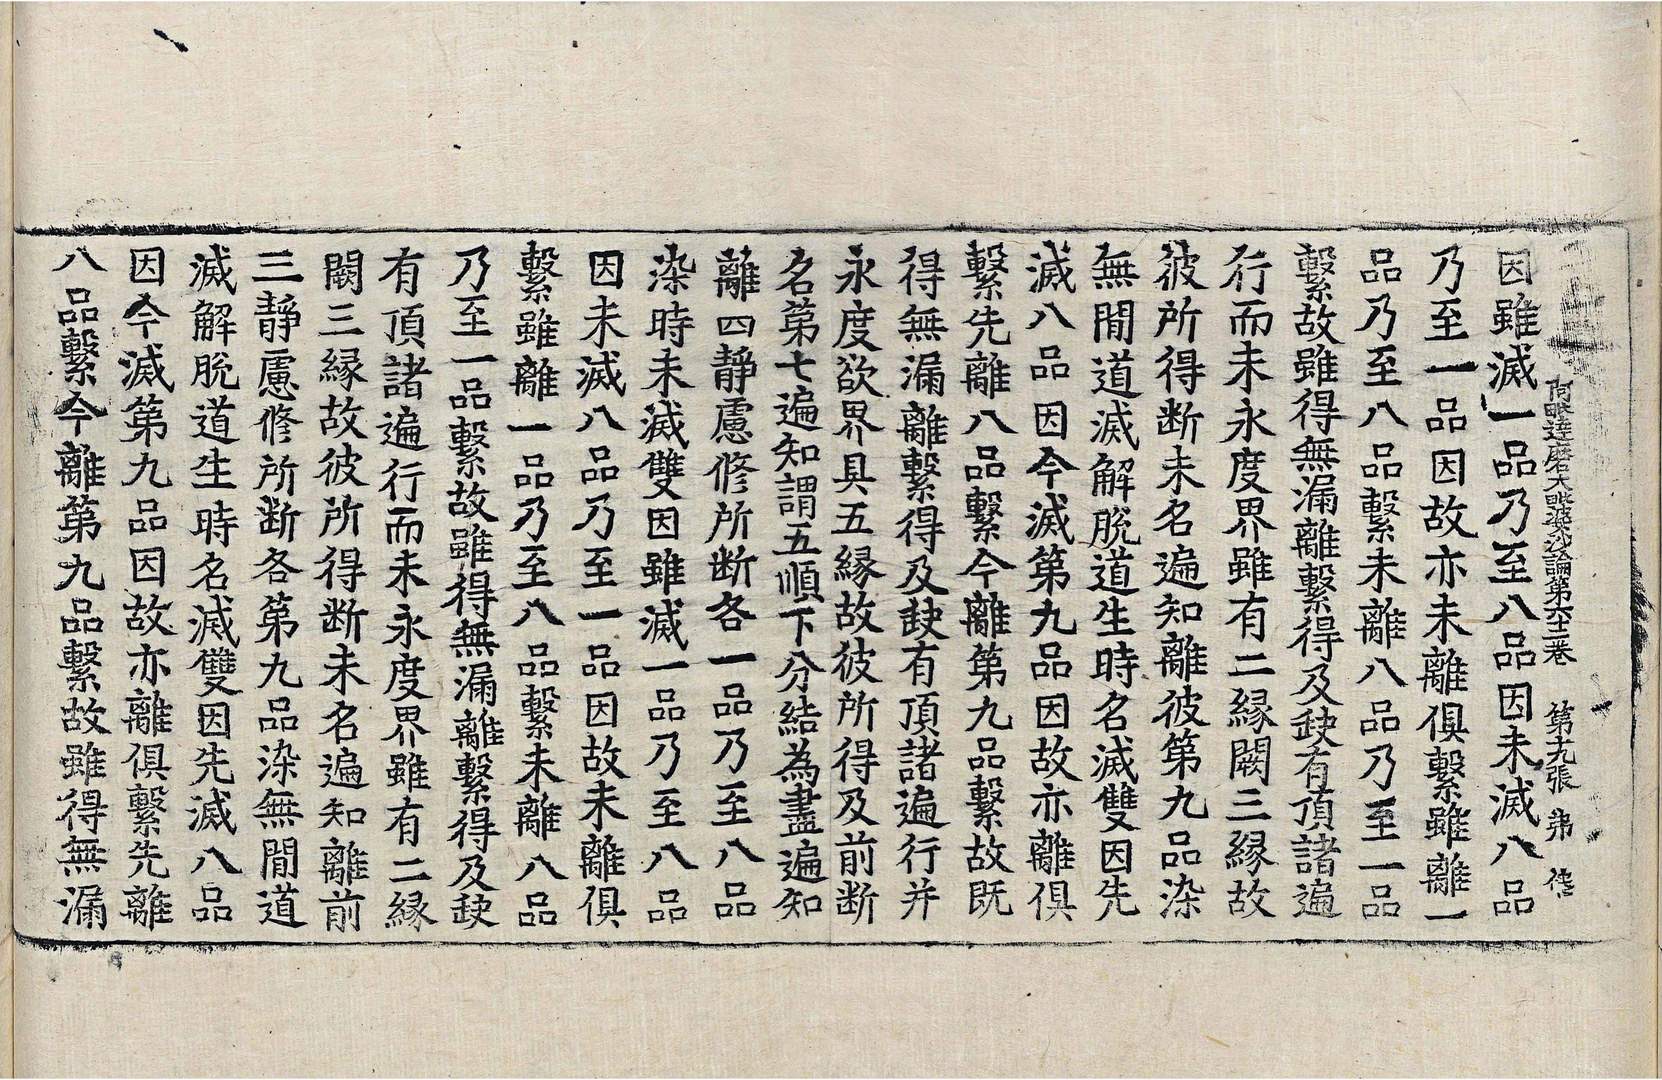 阿毗達磨大毗婆沙論第六十二卷 第九張 弗
因雖滅一品乃至八品因未滅八品
乃至一品因故亦未離俱繫雖離一
品乃至八品繫未離八品乃至一品
繫故雖得無漏離繫得及缺有頂諸遍
行而未永度界雖有二縁闕三縁故
彼所得断未名遍知離彼第九品染
無閒道滅解脫道生時名滅雙因先
滅八品因今滅第九品因故亦離俱
繫先離八品繫今離第九品繫故既
得無漏離繫得及缺有頂諸遍行并
永度欲界具五縁故彼所得及前断
名第七遍知謂五順下分結為盡遍知
離四靜慮修所断各一品乃至八品
染時未滅雙因雖滅一品乃至八品
因未滅八品乃至一品因故未離俱
繫雖離一品乃至八品繫未離八品
乃至一品繫故雖得無漏離繫得及缺
有頂諸遍行而未永度界雖有二縁
闕三縁故彼所得断未名遍知離前
三靜慮修所断各第九品染無閒道
滅解脫道生時名滅雙因先滅八品
因今滅第九品因故亦離俱繫先離
八品繫今離第九品繫故雖得無漏